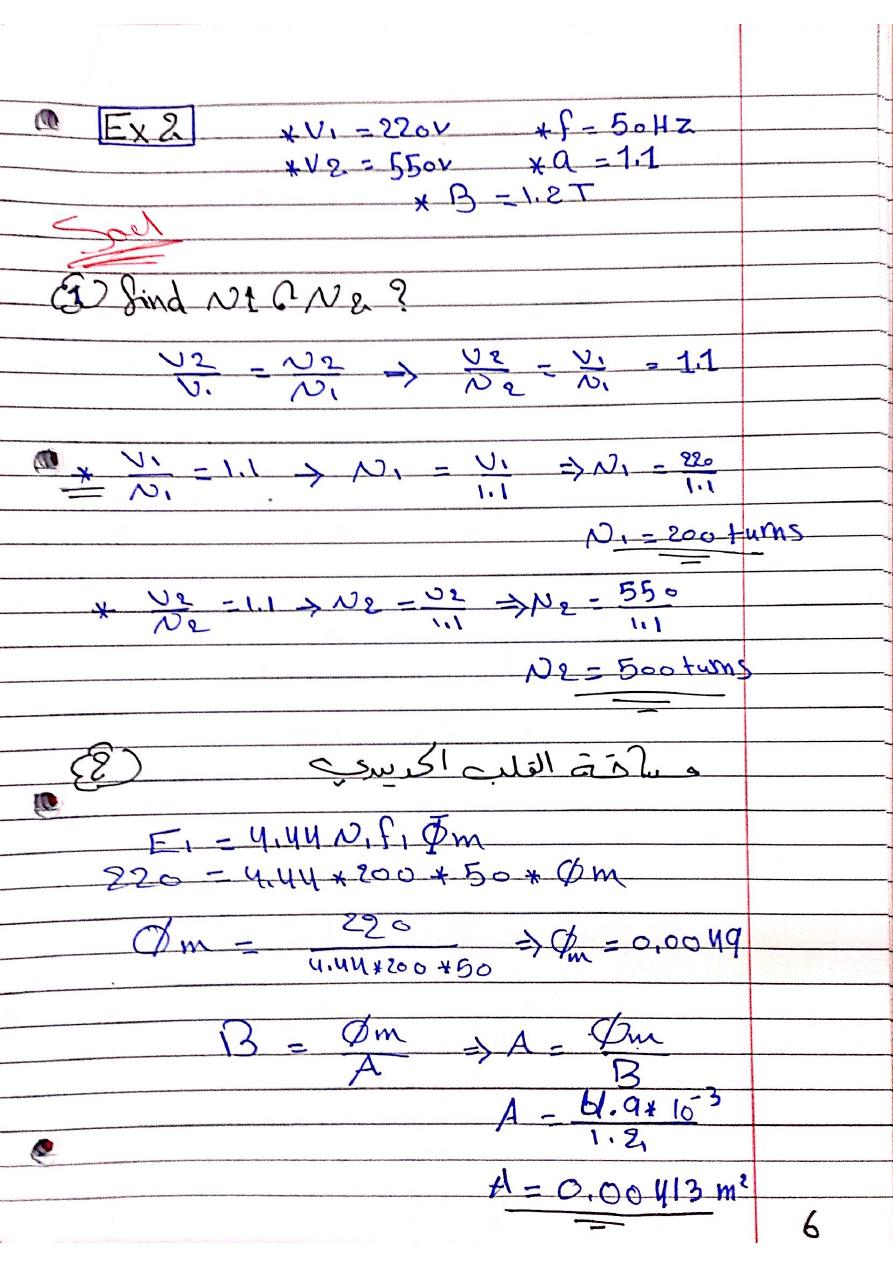 Ex 2 * V1 = 220V * f = 50HZ
* V2 = 550V * a = 1.1
* B = 1.2 T
① find N1 & N2 ?
V2/V1 = N2/N1 ⇒ V2/N2 = V1/N1 = 1.1
* V1/N1 = 1.1 → N1 = V1/1.1 ⇒ N1 = 220/1.1
N1 = 200 turns
* V2/N2 = 1.1 → N2 = V2/1.1 ⇒ N2 = 550/1.1
N2 = 500 turns
② مساحة القلب الحديدي
E1 = 4.44 N1 f1 Φm
220 = 4.44 * 200 * 50 * Φm
Φm = 220/4.44*200*50 ⇒ Φm = 0.0049
B = Φm/A ⇒ A = Φm/B
A = 4.9* 10^-3/1.2
A = 0.00413 m²
6